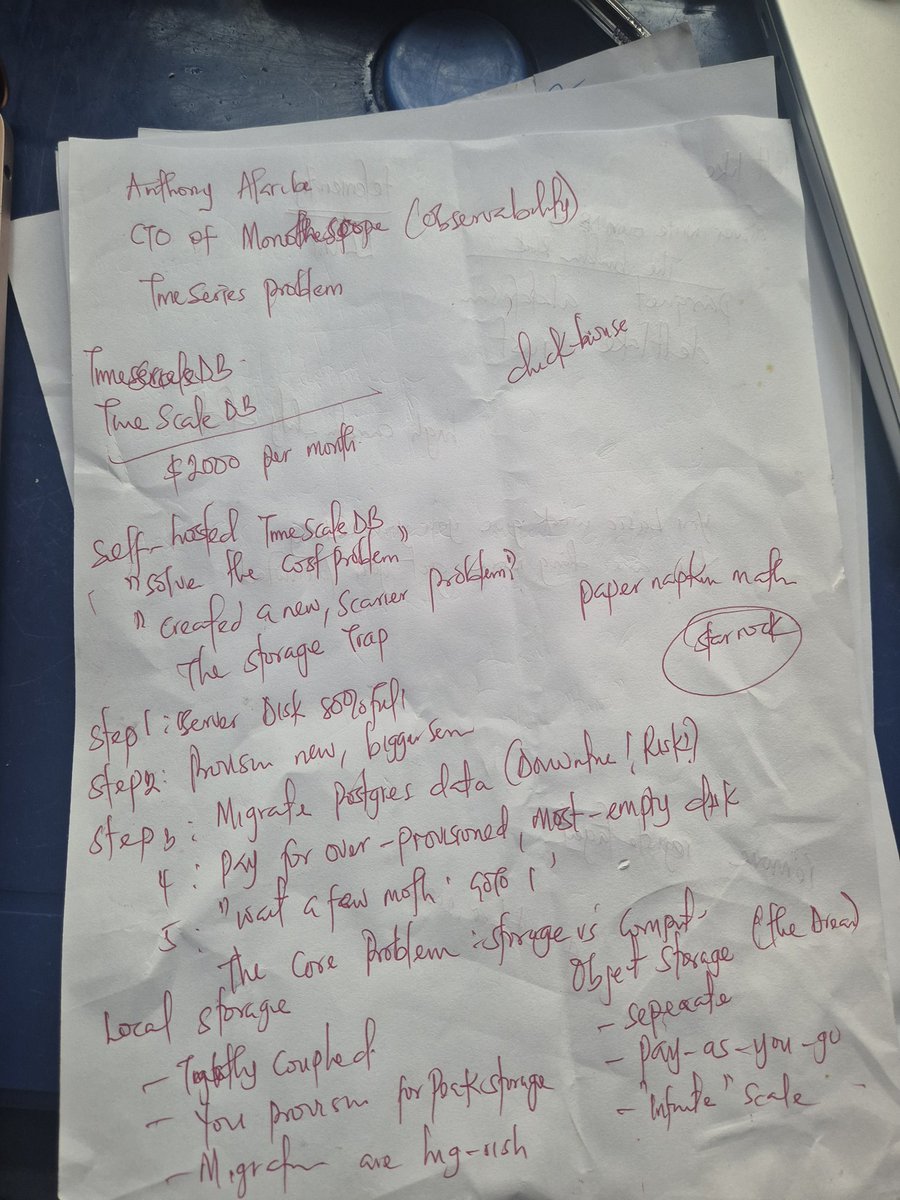 Anthony Afaribe
CTO of Monothescope (Observability)
TimeSeries problem
click-house
TimescaleDB
Time Scale DB
$2000 per month
Self-hosted TimeScaleDB
"solve the cost problem"
"created a new, scarier problem?
The storage Trap
paper napkin math
starrock
Step 1: Server Disk 80% full
Step 2: Provism new, bigger
Step 3: Migrate Postgres data (Downtime! Risk!)
4: pay for over-provisioned, most-empty disk
5: "wait a few moth. goto 1"
The Core Problem: storage vs Comput-
Local storage
Object storage (the Dream)
- Tightly Coupled
- You provism for Peak storage
- Migration are hig-rish
- sepeate
- pay-as-you-go
- "Infinite" scale